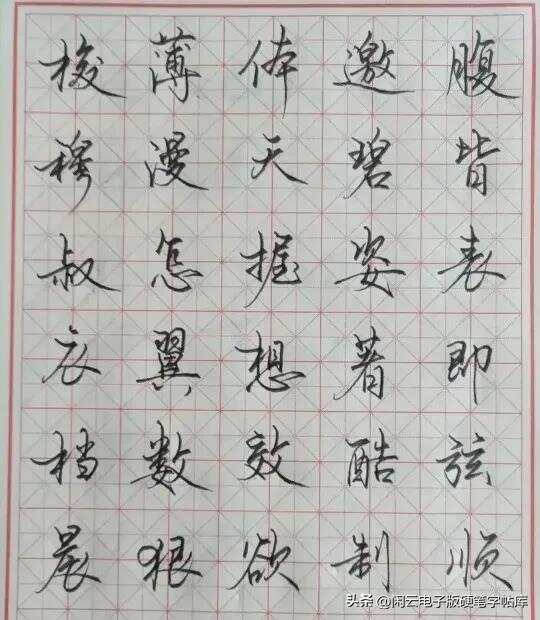 梭薄体邀腹
穆漫天碧皆
叔怎握姿表
衣翼想著即
档数效酷弦
晨狠欲制顺
头条 @闲云电子版硬笔字帖库